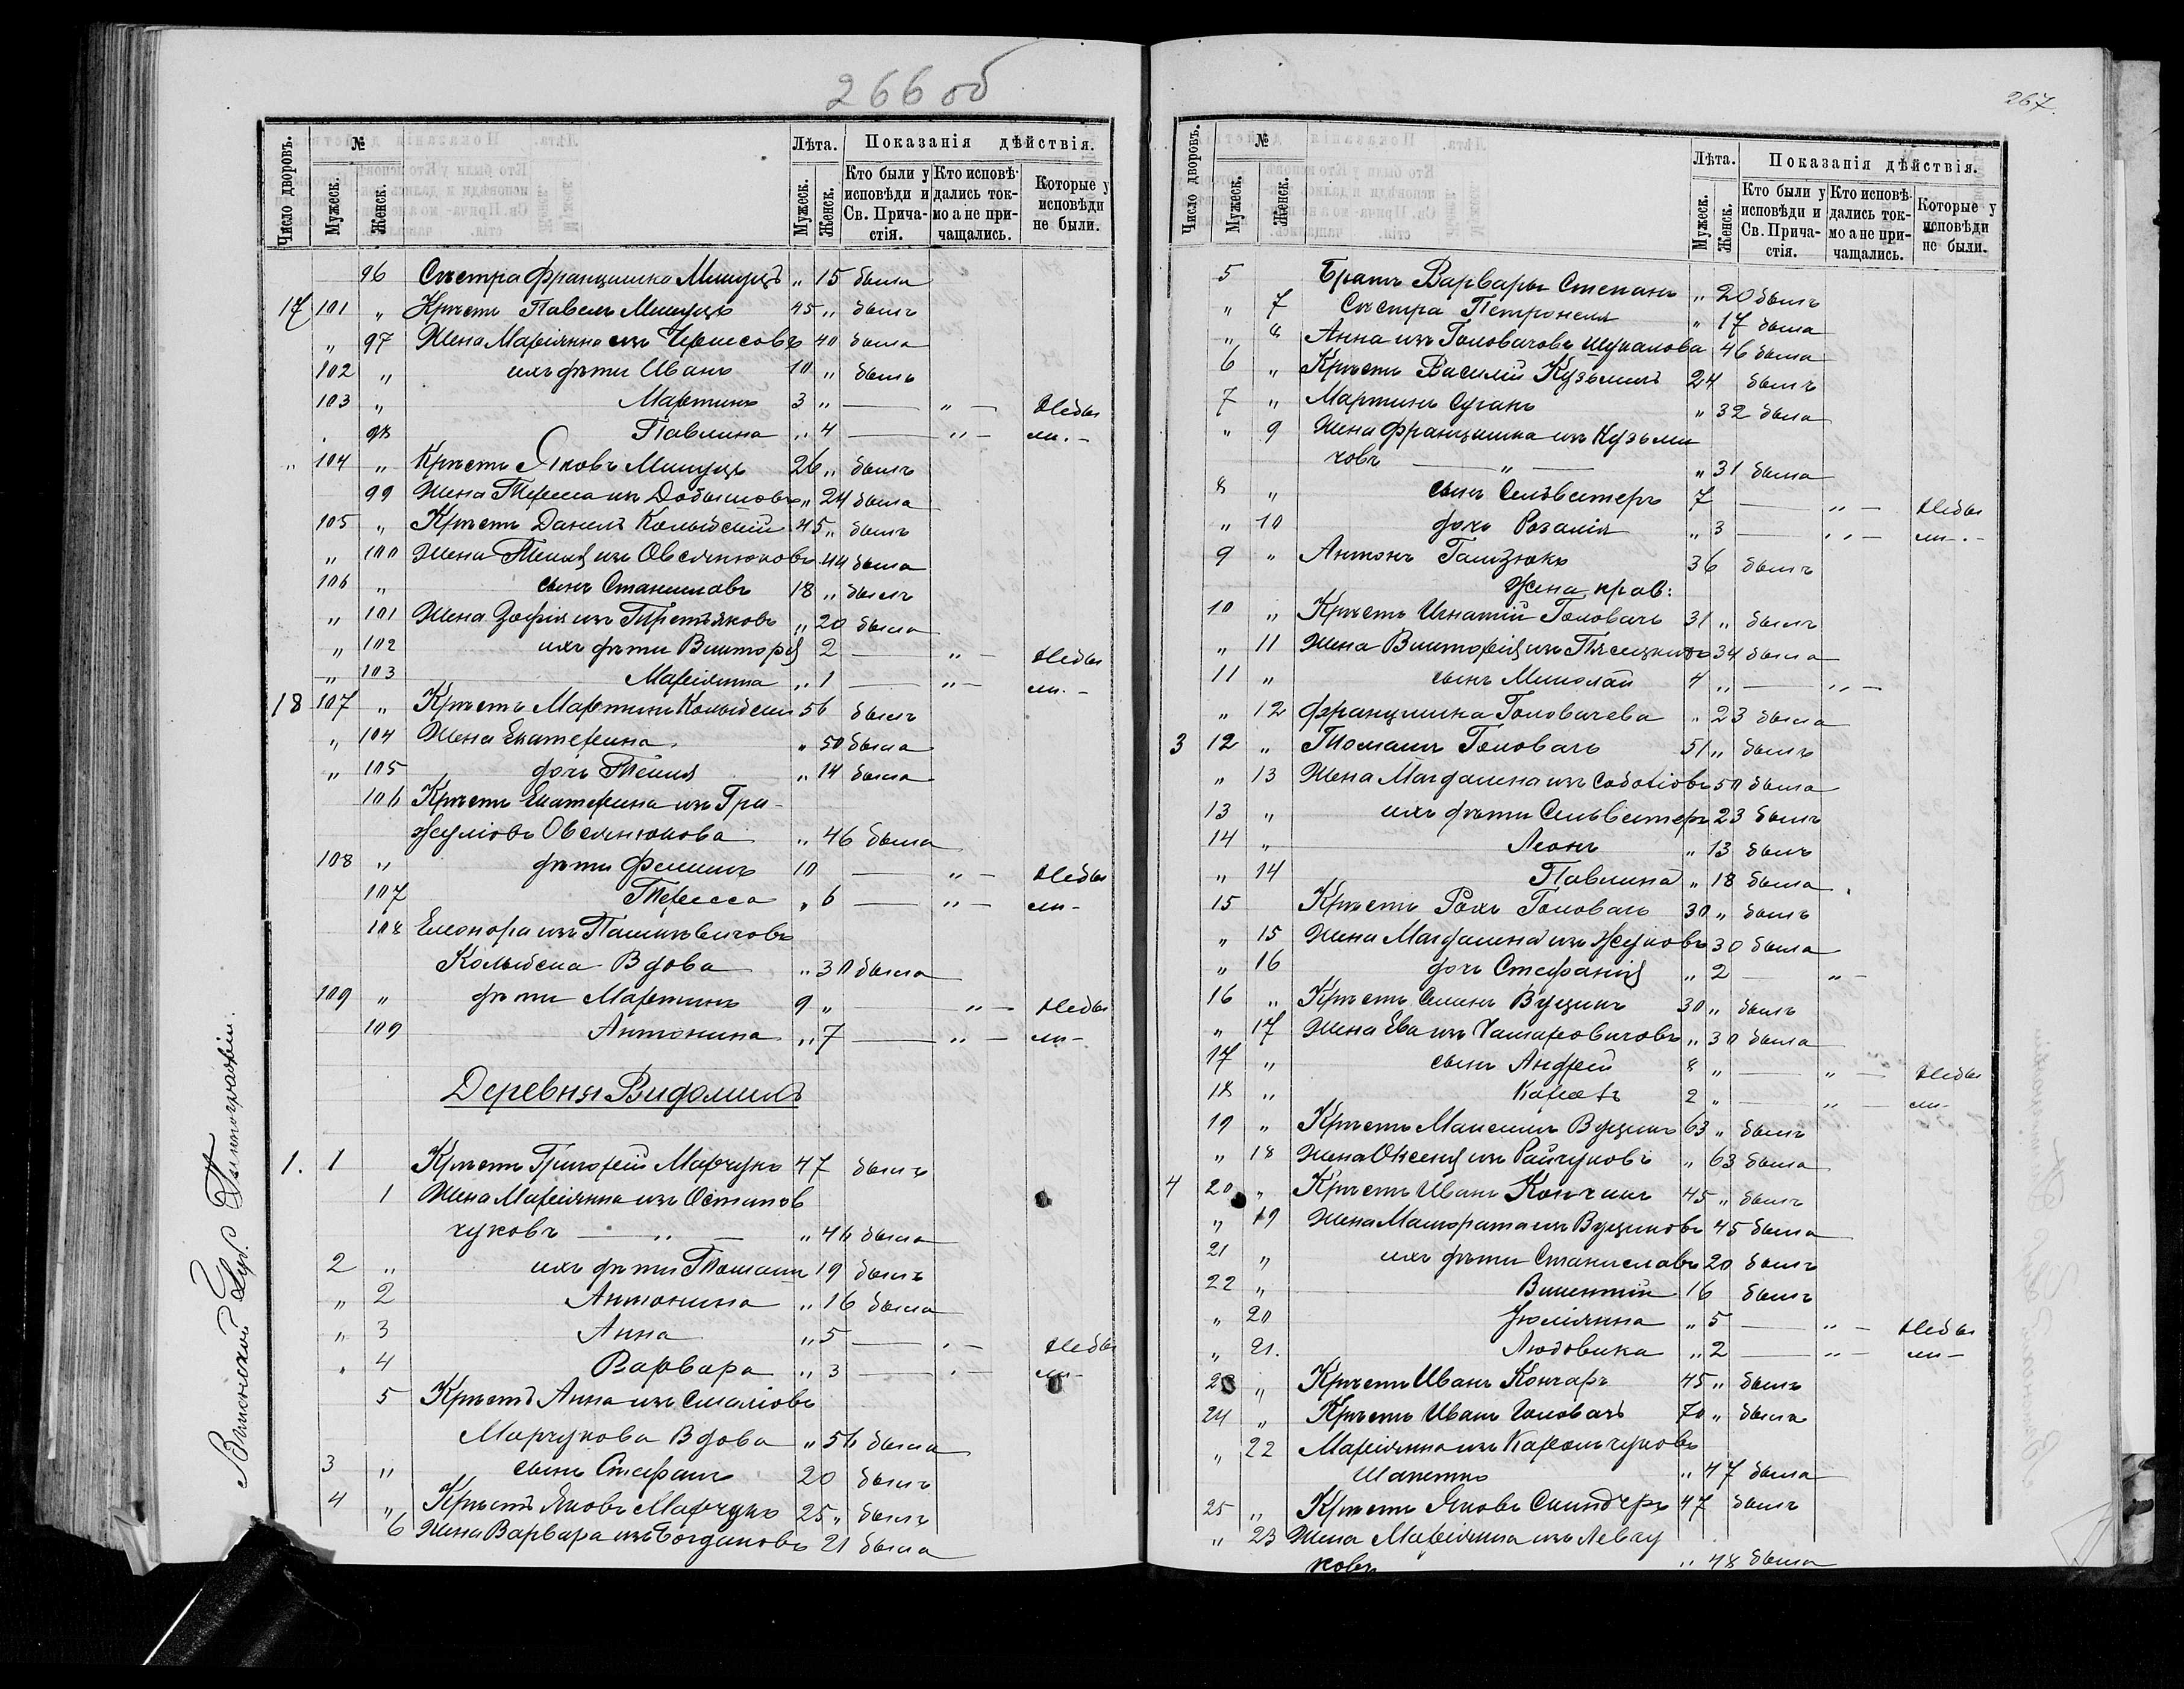 266 об
Число дворовъ.
№
Мужеск.
Женск.
Лѣта.
Мужеск.
Женск.
Показанія дѣйствія.
Кто были у исповѣди и Св. Прича-стія.
Кто исповѣ-дались ток-мо а не при-чащались.
Которые у исповѣди не были.
96 Сестра Францишка " 15 была
17 101 " Крест. Павелъ 45 " былъ
" 97 Жена Маріянна изъ 40 была
102 " ихъ дѣти Иванъ 10 " былъ
103 " Мартинъ 3 " — " — Небы
98 Павлина " 4 — " — ли. -
" 104 " Крест. Яковъ 26 " былъ
99 Жена Тереса изъ " 24 была
105 " Крест. Данилъ 45 " былъ
" 100 Жена Текля изъ Овсянюковъ 44 была
106 " сынъ Станиславъ 18 " былъ
" 101 Жена Зофія изъ Третьяковъ " 20 была
" 102 ихъ дѣти Викторія 2 — " — Небы
" 103 Маріянна " 1 — " — ли. -
18 107 " Крестъ Мартинъ 56 былъ
" 104 Жена Екатерина " 50 была
" 105 дочь Текля " 14 была
106 Крест Екатерина изъ Гри-
жуліовъ Овсянюкова " 46 была
108 " дѣти Феликъ 10 — " — Небы
107 Тересса " 6 — " — ли-
108 Елеонора изъ
Вдова " 30 была
109 " дѣти Мартинъ 9 " " — Небы
109 Антонина " 7 — " — ли-
Деревня Видомля
1. 1 Крест Григорій Марчукъ 47 былъ
1 Жена Маріянна изъ Остапов
чуковъ — " — " 46 была
2 " ихъ дѣти Томашъ 19 былъ
" 2 Антонина " 16 была
" 3 Анна " 5 — " — Небы
" 4 Варвара " 3 — " — ли-
5 Крест Анна изъ
Марчукова Вдова " 56 была
3 " сынъ Стефанъ 20 былъ
4 " Крест Яковъ Марчукъ 25 " былъ
6 Жена Варвара изъ Богдановъ 21 была
267.
Число дворовъ.
№
Мужеск.
Женск.
Лѣта.
Мужеск.
Женск.
Показанія дѣйствія.
Кто были у исповѣди и Св. Прича-стія.
Кто исповѣ-дались ток-мо а не при-чащались.
Которые у исповѣди не были.
5 Братъ Варвары Степанъ " 20 былъ
" 7 Сестра Петронеля " 17 была
" 8 Анна изъ Головачовъ 46 была
6 " Крестъ Василій Кузьмичъ 24 былъ
7 " Мартинъ " 32 была
" 9 Жена Францишка изъ Кузьми
човъ — " — " 31 была
8 " сынъ Сильвестеръ 7 — " — Небы
" 10 дочь Розалія " 3 — " — ли. -
9 " Антонъ 36 былъ
Жена прав:
10 " Крест Игнатій Головачъ 31 " былъ
" 11 Жена Викторія изъ 34 была
11 " сынъ Миколай 4 " — " —
" 12 Францишка Головачева " 23 была
3 12 " Томашъ Головачъ 51 " былъ
" 13 Жена Магдалина изъ 50 была
13 " ихъ дѣти Сильвестеръ 23 былъ
14 " Леонъ " 13 былъ
" 14 Павлина " 18 была
15 Крестъ Рохъ Головачъ 30 " былъ
" 15 Жена Магдалина изъ Жуковъ 30 была
" 16 дочь Стефанія " 2 — " —
16 " Крест Вуцикъ 30 " былъ
" 17 Жена Ева изъ " 30 была
17 " сынъ Андрей 8 " — " — Небы
18 " Каролъ 2 " — " — ли-
19 " Крест Максимъ Вуцикъ 63 " былъ
" 18 Жена Оксеня изъ Райчуковъ " 63 была
4 20 " Крест Иванъ 45 " былъ
" 19 Жена Малгората изъ Вуциковъ 45 была
21 " ихъ дѣти Станиславъ 20 былъ
22 " Викентій 16 былъ
" 20 Юліянна " 5 — " — Небы
" 21. Людовика " 2 — " — ли-
23 " Крест Иванъ 45 " былъ
24 " Крестъ Иванъ Головачъ 70 " была
" 22 Маріянна изъ Карольчуковъ
" 47 была
25 " Крестъ Яковъ 47 былъ
" 23 Жена Маріянна изъ Левчу
ковъ " 48 была
Виленской Губ. Типографіи.